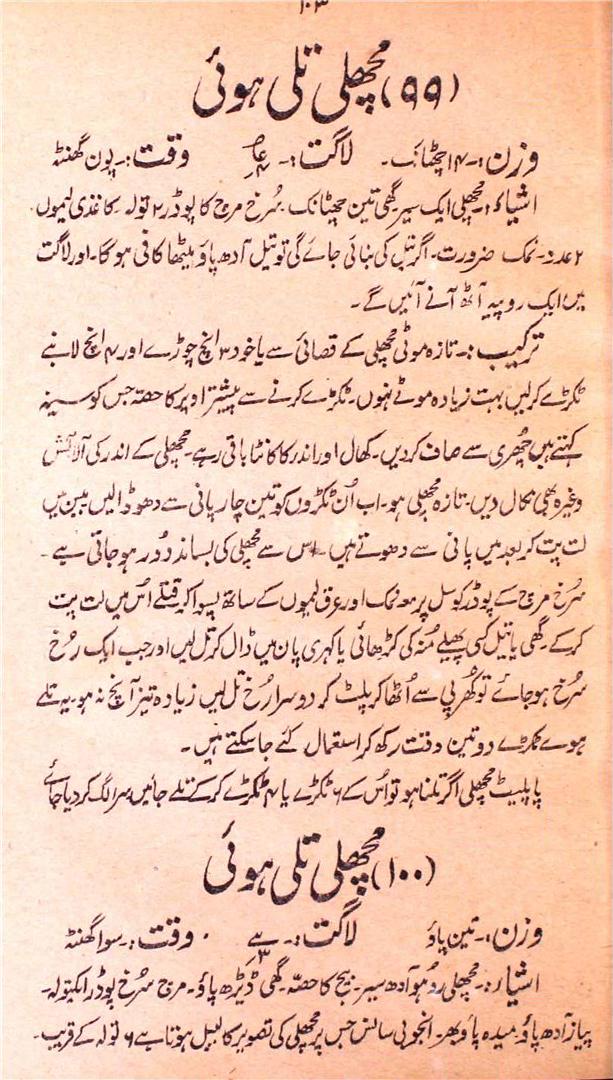 ۱۰۳
(۹۹) مچھلی تلی ہوئی
وزن:۔ ۱۴ چھٹانک۔ لاگت:۔ وقت:۔ پون گھنٹہ
اشیاء:۔ مچھلی ایک سیر گھی تین چھٹانک۔ سُرخ مرچ کا پوڈر ۲ تولہ۔ کاغذی لیموں
۲ عدد۔ نمک ضرورت۔ اگر تیل کی بنائی جائے گی تو تیل آدھ پاؤ میٹھا کافی ہو گا۔ اور لاگت
میں ایک روپیہ آٹھ آنے آئیں گے۔
ترکیب:۔ تازہ موٹی مچھلی کے قصائی سے یا خود ۳ انچ چوڑے اور ۴ انچ لانبے
ٹکڑے کر لیں بہت زیادہ موٹے نہوں۔ ٹکڑے کرنے سے پیشتر اوپر کا حصہ جس کو سینہ
کہتے ہیں چھری سے صاف کر دیں۔ کھال اور اندر کا کانٹا باقی رہے۔ مچھلی کے اندر کی آلائش
وغیرہ بھی نکال دیں۔ تازہ مچھلی ہو۔ اب اُن ٹکڑوں کو تین چار پانی سے دھو ڈالیں بیسن میں
لت پت کر بعد میں پانی سے دھوتے ہیں۔ اس سے مچھلی کی بساند دُور ہو جاتی ہے۔
سُرخ مرچ کے پوڈر کو سل پر معہ نمک اور عرق لیموں کے ساتھ پسوا کر قتلے اُس میں لت پت
کر کے گھی یا تیل کسی پھیلے مُنہ کی کڑھائی یا کہری پان میں ڈال کر تل لیں اور جب ایک رُخ
سُرخ ہو جائے تو کھُرپی سے اُٹھا کر پلٹ کر دوسرا رُخ تل لیں زیادہ تیز آنچ نہ ہو۔ یہ تلے
ہوے ٹکڑے دو تین وقت رکھ کر استعمال کئے جا سکتے ہیں۔
پاپلیٹ مچھلی اگر تلنا ہو تو اُس کے ۶ ٹکڑے یا ۴ ٹکڑے کر کے تلے جائیں سر الگ کر دیا جائے
(۱۰۰) مچھلی تلی ہوئی
وزن:۔ تین پاؤ لاگت:۔ وقت:۔ سوا گھنٹہ
اشیاء:۔ مچھلی روہو آدھ سیر۔ بیچ کا حصہ۔ گھی ڈیڑھ پاؤ۔ مرچ سُرخ پوڈر ایکتولہ۔
پیاز آدھ پاؤ میدہ پاؤ بھر۔ انجوبی ساس جس پر مچھلی کی تصویر کا لیبل ہوتا ہے ۶ تولہ کے قریب۔